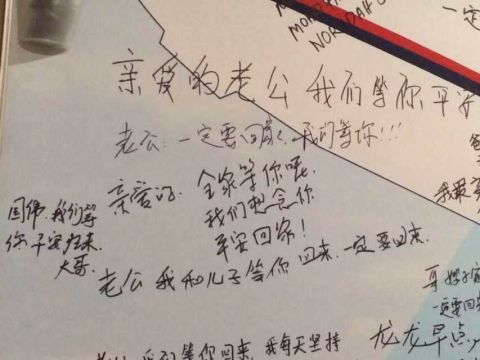 NOR DAH
一定
亲爱的老公 我们等你平安
老公:一定要回家,我们等你!!!
亲爱的: 全家等你呢,
我们想念你
平安回家!
国伟,我们等
你平安归来
大哥.
老公 我和儿子等你 回来,一定要回来.
我最
一定要回来
们等你回来,我每天坚持
龙龙早点